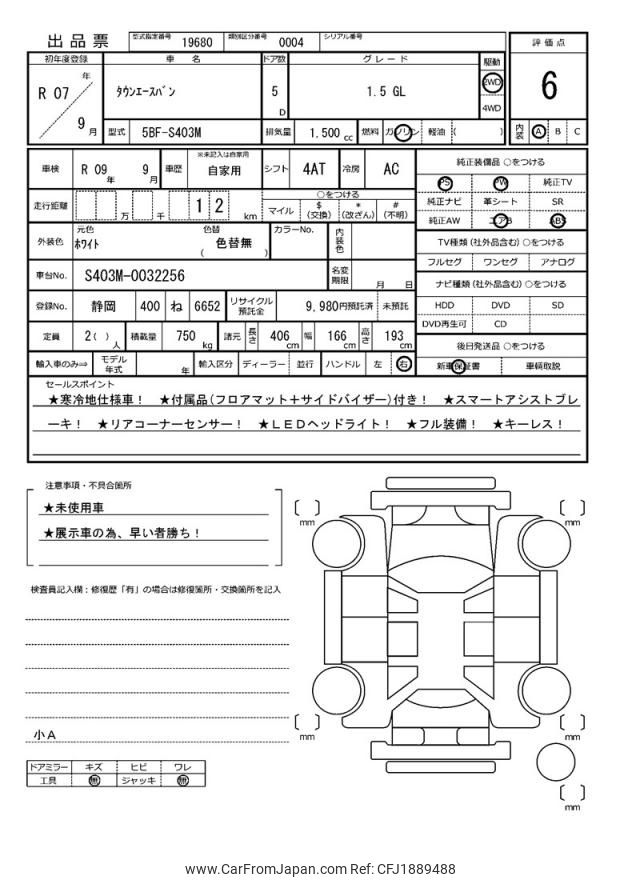 出品票 型式指定番号 19680 類別区分番号 0004 シリアル番号
初年度登録 車名 ドア数 グレード 駆動 評価点
R 07 年 9 月 タウンエースバン 5 D 1.5 GL 2WD 4WD 6
型式 5BF-S403M 排気量 1,500 cc 燃料 ガソリン 軽油 ( ) 内装 A B C
車検 R 09 年 9 月 車歴 ※未記入は自家用 自家用 シフト 4AT 冷房 AC 純正装備品 ○をつける
PS PW 純正TV
走行距離 万 千 1 2 km ○をつける
マイル $ (交換) * (改ざん) # (不明)
純正ナビ 革シート SR
純正AW エアB ABS
外装色 元色 ホワイト 色替 色替無 ( ) カラーNo. 内装色
TV種類 (社外品含む) ○をつける
フルセグ ワンセグ アナログ
車台No. S403M-0032256 名変期限 月 日
ナビ種類 (社外品含む) ○をつける
登録No. 静岡 400 ね 6652 リサイクル預託金 9,980円預託済 未預託
HDD DVD SD
DVD再生可 CD
定員 2( ) 人 積載量 750 kg 諸元 長さ 406 cm 幅 166 cm 高さ 193 cm
後日発送品 ○をつける
輸入車のみ⇒ モデル年式 年 輸入区分 ディーラー 並行 ハンドル 左 右
新車保証書 車輌取説
セールスポイント
★寒冷地仕様車! ★付属品(フロアマット+サイドバイザー)付き! ★スマートアシストブレ
ーキ! ★リアコーナーセンサー! ★LEDヘッドライト! ★フル装備! ★キーレス!
注意事項・不具合箇所
★未使用車
★展示車の為、早い者勝ち!
検査員記入欄:修復歴「有」の場合は修復箇所・交換箇所を記入
小A
ドアミラー キズ ヒビ ワレ
工具 無 ジャッキ 無
[ ] mm
[ ] mm
[ ] mm
[ ] mm
[ ] mm
www.CarFromJapan.com Ref: CFJ1889488